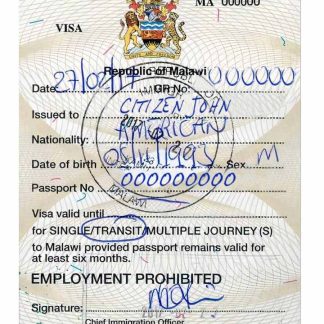 MA 000000
VISA
UNITY AND FREEDOM
Republic of Malawi
Date 27/02/17 GR No: 000000
Issued to CITIZEN JOHN
Nationality: AMERICAN
Date of birth 05/11/1993 Sex M
Passport No 000000000
Visa valid until
for SINGLE/TRANSIT/MULTIPLE JOURNEY (S)
to Malawi provided passport remains valid for
at least six months.
EMPLOYMENT PROHIBITED
Signature:
Chief Immigration Officer
MALAWI